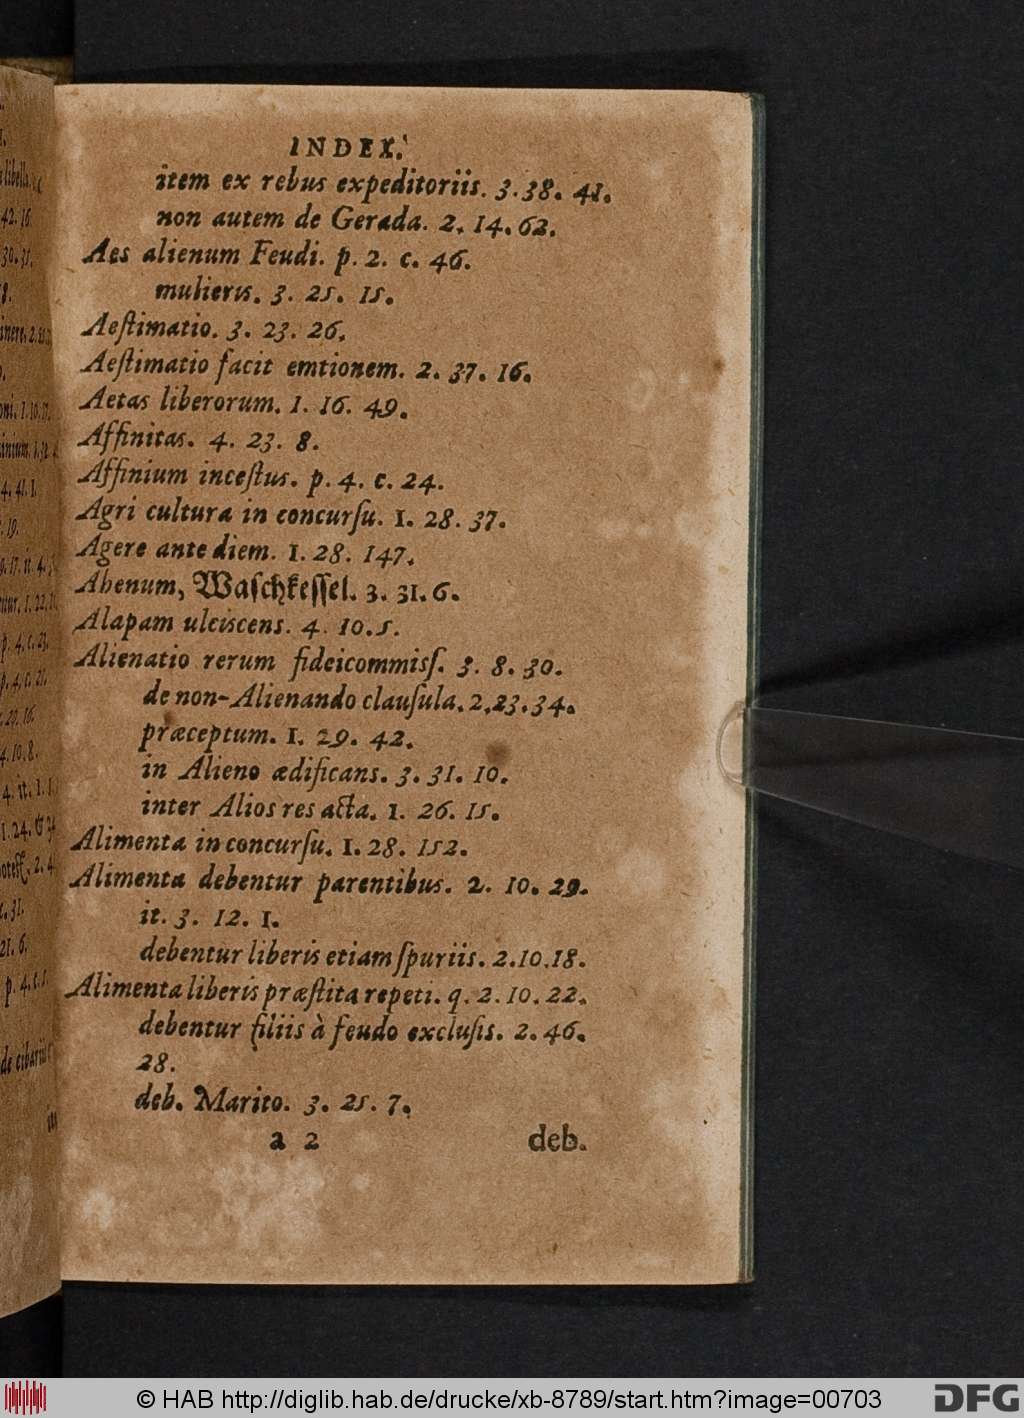 INDEX.
item ex rebus expeditoriis. 3. 38. 41.
non autem de Gerada. 2. 14. 62.
Aes alienum Feudi. p. 2. c. 46.
mulieris. 3. 25. 15.
Aeſtimatio. 3. 23. 26.
Aeſtimatio facit emtionem. 2. 37. 16.
Aetas liberorum. 1. 16. 49.
Affinitas. 4. 23. 8.
Affinium inceſtus. p. 4. c. 24.
Agri cultura in concurſu. 1. 28. 37.
Agere ante diem. 1. 28. 147.
Ahenum, Waſchkeſſel. 3. 31. 6.
Alapam ulciscens. 4. 10. 5.
Alienatio rerum fideicommiſſ. 3. 8. 30.
de non-Alienando clauſula. 2. 23. 34.
præceptum. 1. 29. 42.
in Alieno ædificans. 3. 31. 10.
inter Alios res acta. 1. 26. 15.
Alimenta in concurſu. 1. 28. 152.
Alimenta debentur parentibus. 2. 10. 29.
it. 3. 12. 1.
debentur liberis etiam ſpuriis. 2. 10. 18.
Alimenta liberis præſtita repeti. q. 2. 10. 22.
debentur filiis à feudo excluſis. 2. 46.
28.
deb. Marito. 3. 25. 7.
a 2 deb.
© HAB http://diglib.hab.de/drucke/xb-8789/start.htm?image=00703
DFG